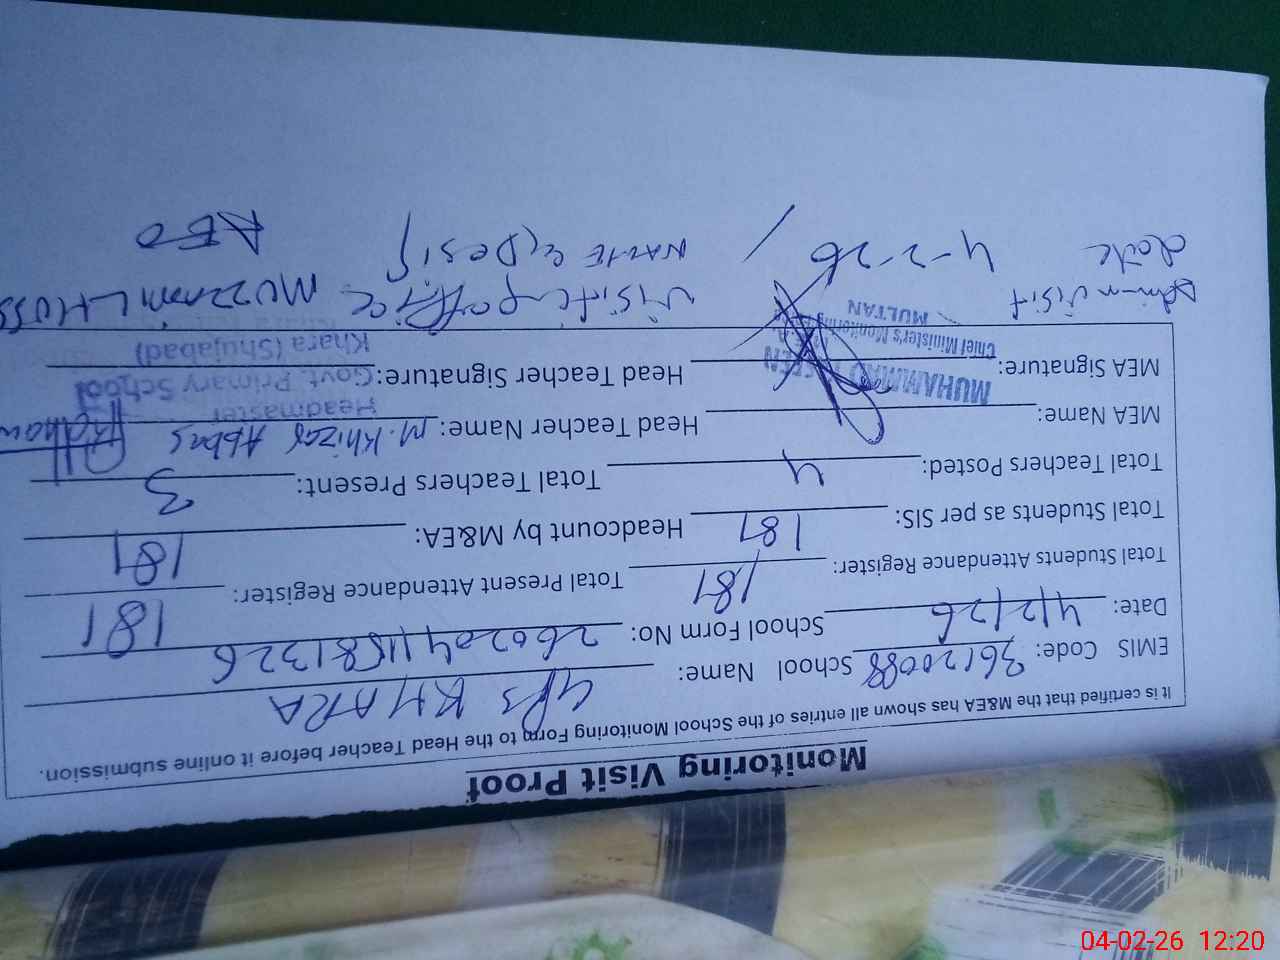 Monitoring Visit Proof
It is certified that the M&EA has shown all entries of the School Monitoring Form to the Head Teacher before it online submission.
EMIS Code: 36120088 School Name: GPS KHARA
Date: 4/2/26 School Form No: 26020411581326
Total Students Attendance Register: 181 Total Present Attendance Register: 181
Total Students as per SIS: 181 Headcount by M&EA: 181
Total Teachers Posted: 4 Total Teachers Present: 3
MEA Name: Head Teacher Name: M. Khizar Abbas
MEA Signature: Head Teacher Signature:
MUHAMMAD
Chief Minister's Monitoring
MULTAN
Headmaster
Govt. Primary School
Khara (Shujabad)
Admin visit visiting office MUZZAMIL HUSS
date 4-2-26 / NAME & Desig AEO
04-02-26 12:20